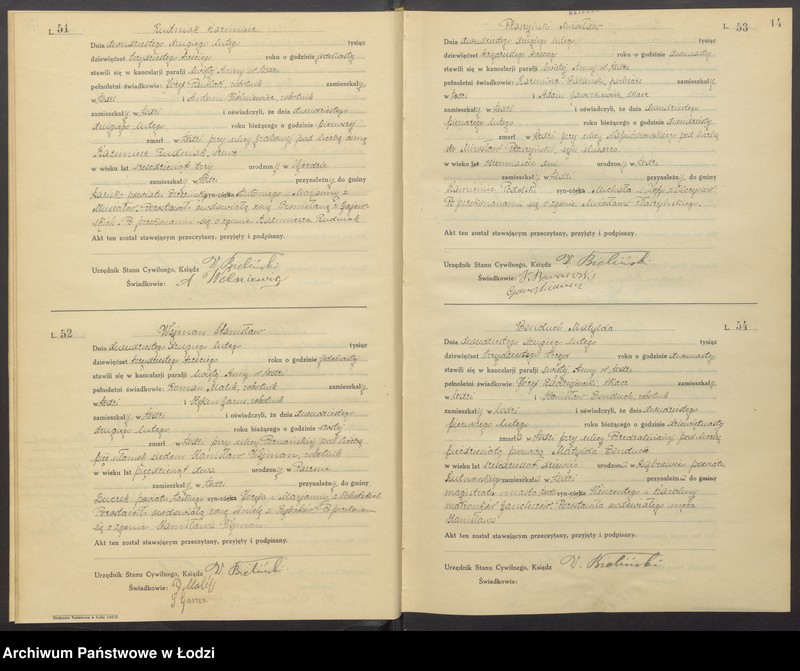 14
L. 51
Rudniak Kazimierz
Dnia dwudziestego drugiego lutego tysiąc
dziewięćset trzydziestego trzeciego roku o godzinie jedenastej
stawili się w kancelarji parafji świętej Anny w Łodzi
pełnoletni świadkowie: Józef Pawlak, robotnik zamieszkały
w Łodzi i Antoni Wolniewicz, robotnik
zamieszkały w Łodzi i oświadczyli, że dnia dwudziestego
drugiego lutego roku bieżącego o godzinie pierwszej
zmarł w Łodzi przy ulicy pod liczbą
Kazimierz Rudniak, szewc
w wieku lat sześćdziesiąt trzy urodzony w
zamieszkały w Łodzi przynależny do gminy
powiatu syn-córka Antoniego i Marjanny z
Pozostawił owdowiałą żonę Bronisławę z
Po przekonaniu się o zgonie Kazimierza Rudniak
Akt ten został stawającym przeczytany, przyjęty i podpisany.
Urzędnik Stanu Cywilnego, Ksiądz W. Bieliński
Świadkowie: A Wolniewicz
L. 52
Wejman Stanisław
Dnia dwudziestego drugiego lutego tysiąc
dziewięćset trzydziestego trzeciego roku o godzinie jedenastej
stawili się w kancelarji parafji świętej Anny w Łodzi
pełnoletni świadkowie: Roman Malik, robotnik zamieszkały
w Łodzi i Stefan Garus, robotnik
zamieszkały w Łodzi i oświadczyli, że dnia dwudziestego
drugiego lutego roku bieżącego o godzinie szóstej
zmarł w Łodzi przy ulicy Poznańskiej pod liczbą
siedem Stanisław Wejman, robotnik
w wieku lat pięćdziesiąt dwa urodzony w
zamieszkały w Łodzi przynależny do gminy
Buczek powiatu Łaskiego syn-córka Józefa i Marjanny z
Pozostawił owdowiałą żonę z Po przekonaniu
się o zgonie Stanisława Wejman
Akt ten został stawającym przeczytany, przyjęty i podpisany.
Urzędnik Stanu Cywilnego, Ksiądz W. Bieliński
Świadkowie: R Malik
S Garus
Drukarnia Państwowa w Łodzi
L. 53
Płaczyński Mirosław
Dnia dwudziestego drugiego lutego tysiąc
dziewięćset trzydziestego trzeciego roku o godzinie dwunastej
stawili się w kancelarji parafji świętej Anny w Łodzi
pełnoletni świadkowie: Kazimierz zamieszkały
w Łodzi i Adam Jaworkiewicz,
zamieszkały w Łodzi i oświadczyli, że dnia dwudziestego
pierwszego lutego roku bieżącego o godzinie dwudziestej
zmarł w Łodzi przy ulicy Napiórkowskiego pod liczbą
Mirosław Płaczyński, syn
w wieku lat dni urodzony w Łodzi
zamieszkały w Łodzi przynależny do gminy
Kamieniec Podolski syn-córka Michała i Zofji z
Po przekonaniu się o zgonie Mirosława Płaczyńskiego.
Akt ten został stawającym przeczytany, przyjęty i podpisany.
Urzędnik Stanu Cywilnego, Ksiądz W. Bieliński
Świadkowie:
L. 54
Benduch Matylda
Dnia dwudziestego drugiego lutego tysiąc
dziewięćset trzydziestego trzeciego roku o godzinie dwunastej
stawili się w kancelarji parafji świętej Anny w Łodzi
pełnoletni świadkowie: Józef zamieszkały
w Łodzi i Stanisław Benduch, robotnik
zamieszkały w Łodzi i oświadczyli, że dnia dwudziestego
pierwszego lutego roku bieżącego o godzinie dziewiętnastej
zmarła w Łodzi przy ulicy Przędzalnianej pod liczbą
pięćdziesiątą pierwszą Matylda Benduch
w wieku lat sześćdziesiąt dziewięć urodzona w powiatu
zamieszkała w Łodzi przynależna do gminy
magistratu miasta Łodzi syn-córka Wincentego i Karoliny
małżonków Pozostawiła owdowiałego męża
Stanisława
Akt ten został stawającym przeczytany, przyjęty i podpisany.
Urzędnik Stanu Cywilnego, Ksiądz W. Bieliński
Świadkowie:
Archiwum Państwowe w Łodzi